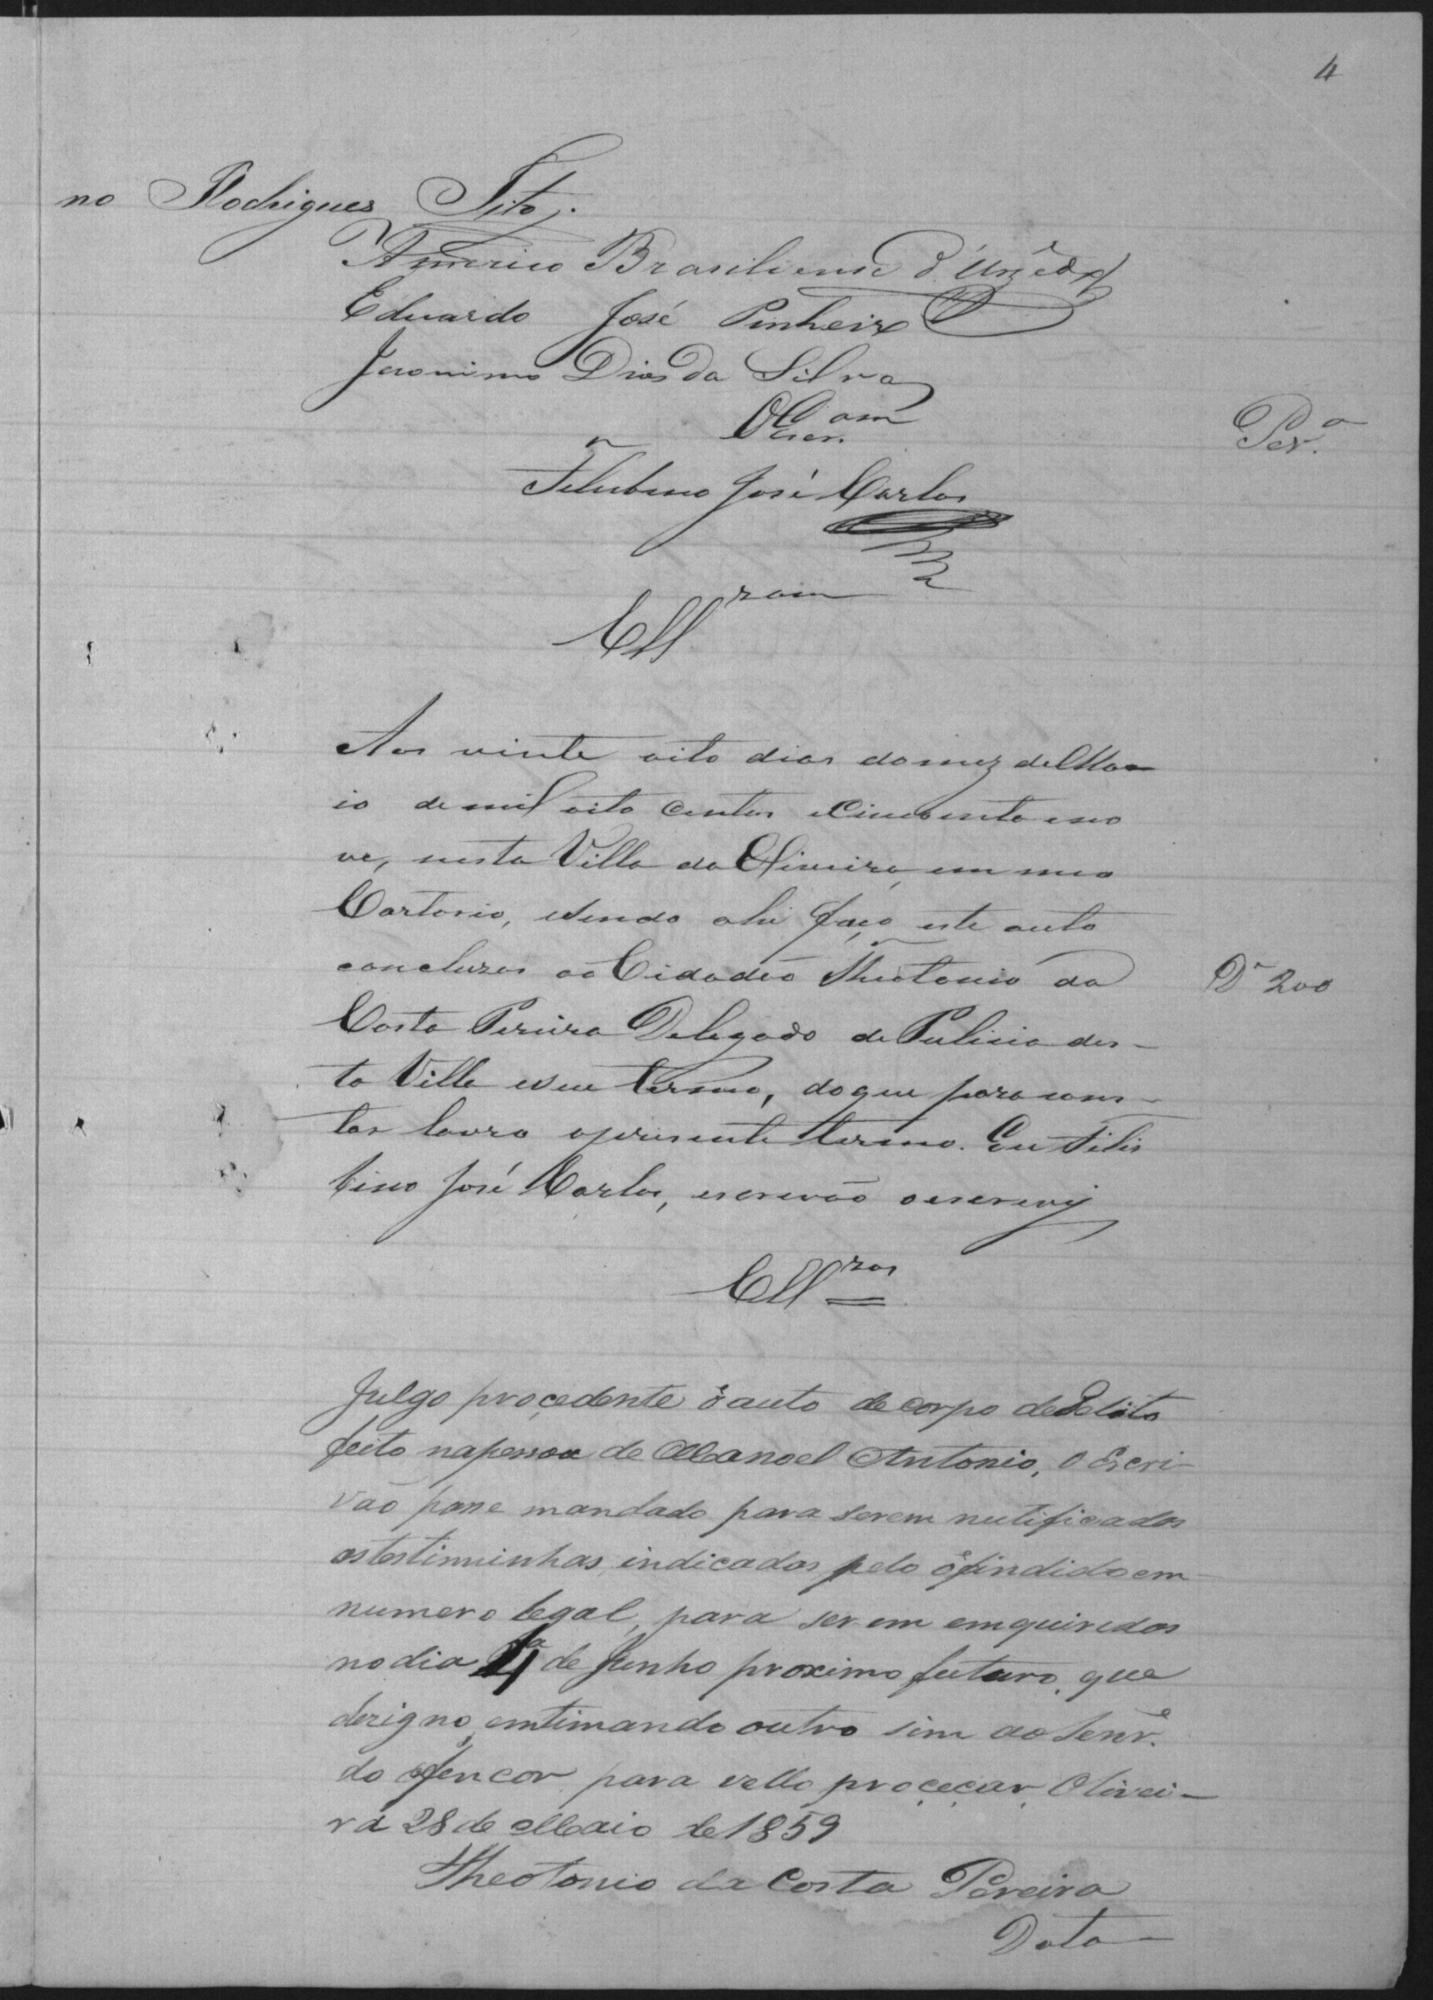 4
no Rodrigues Tito.
Americo Brasiliense
Eduardo José Pinheiro
Jeronimo Dias da Silva
O Escr.am
Per.a
Felisbino José Carlos
Cll ram
Aos vinte oito dias do mez de Ma
io de mil oito centos e Cincoenta e no
ve, nesta Villa da Oliveira, em meu
Cartorio, e sendo ahi faço este auto
concluzos ao Cidadão Theotonio da
Dr 200
Costa Pereira Delegado de Pulicia des-
ta Villa e seu termo, do que para cons-
tar lavro o presente termo. Eu Filis
bino José Carlos, escrivão o escrevy
Cll zos
Julgo proçedente o auto de corpo de Delito
feito na pessoa de Manoel Antonio, O Escri-
vão passe mandado para serem nutificados
as testiminhas, indicados pelo ofindido em
numero legal, para serem emquiridos
no dia 4 de Junho proximo futuro, que
dezigno, emtimando outro sim ao
do ofençor para vello proçeçar. Olivei-
ra 28 de Maio de 1859
Theotonio da Costa Pereira
Data